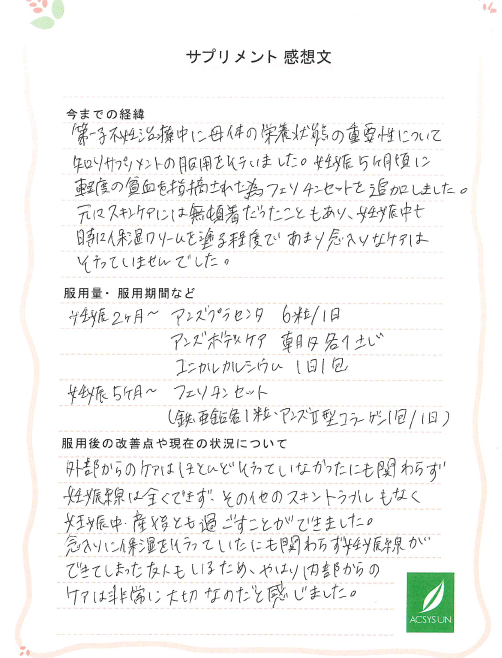 サプリメント 感想文
今までの経緯
第一子不妊治療中に母体の栄養状態の重要性について
知りサプリメントの服用を行いました。妊娠5ヶ月頃に
軽度の貧血を指摘された為フェリチンセットを追加しました。
元々スキンケアには無頓着だったこともあり、妊娠中も
時々保湿クリームを塗る程度であまり念入りなケアは
行っていませんでした。
服用量・服用期間など
妊娠2ヶ月〜 アンズプラセンタ 6粒/1日
アンズボディケア 朝夕各1さじ
ユニカルカルシウム 1日1包
妊娠5ヶ月〜 フェリチンセット
(鉄・亜鉛各1粒・アンズⅡ型コラーゲン1包/1日)
服用後の改善点や現在の状況について
外部からのケアはほとんど行っていなかったにも関わらず
妊娠線は全くできず、その他のスキントラブルもなく
妊娠中・産後とも過ごすことができました。
念入りに保湿を行っていたにも関わらず妊娠線が
できてしまった友人もいるため、やはり内部からの
ケアは非常に大切なのだと感じました。
ACSYSUN